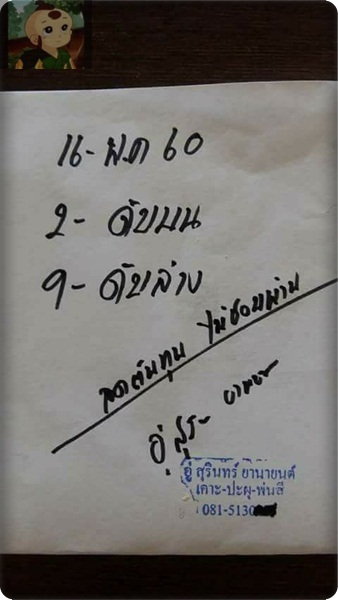 16- พ.ค 60
2- ดับบน
9- ดับล่าง
ลดต้นทุน ไม่ชอบผ่าน
อู่ สุระ ยานยนต์
อู่ สุรินทร์ ยานายนต์
เคาะ-ปะผุ-พ่นสี
081-5130